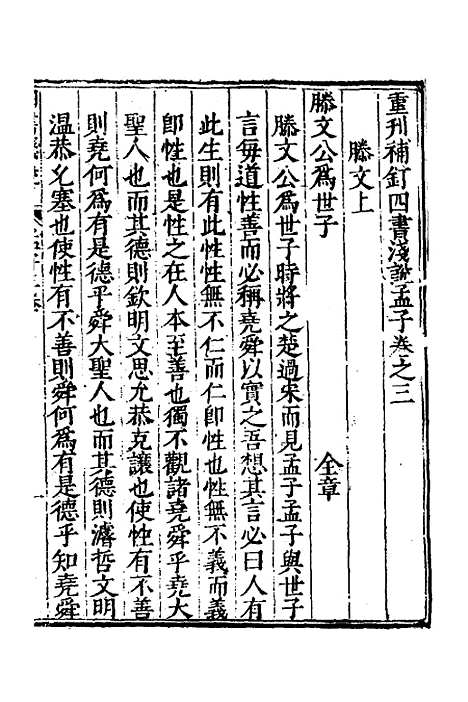 重刊補訂四書淺說孟子卷之三
滕文上
滕文公爲世子 全章
滕文公爲世子時將之楚過宋而見孟子孟子與世子
言每道性善而必稱堯舜以實之吾想其言必曰人有
此生則有此性性無不仁而仁卽性也性無不義而義
卽性也是性之在人本至善也獨不觀諸堯舜乎堯大
聖人也而其德則欽明文思允恭克讓也使性有不善
則堯何爲有是德乎舜大聖人也而其德則濬哲文明
温恭允塞也使性有不善則舜何爲有是德乎知堯舜